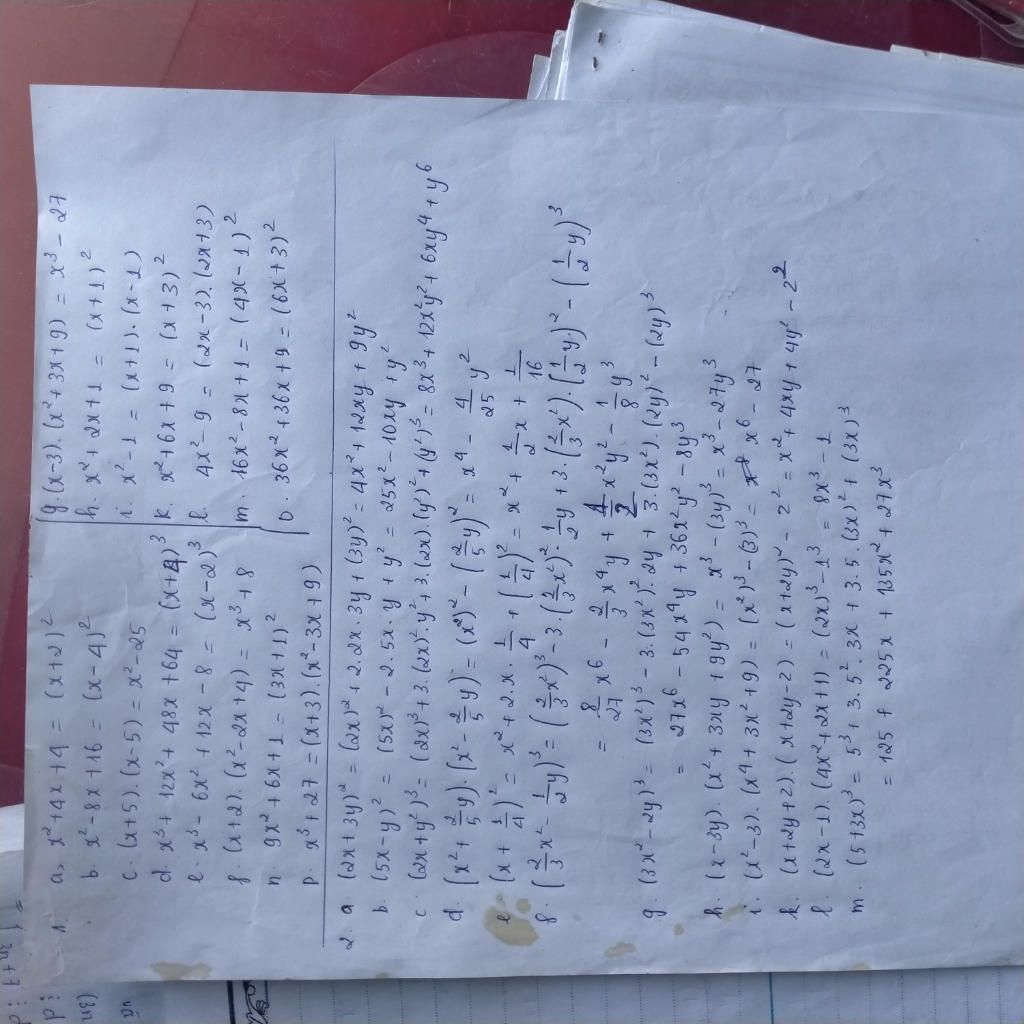 1. a, x² + 4x + 4 = (x + 2)²
b. x² - 8x + 16 = (x - 4)²
c. (x + 5) . (x - 5) = x² - 25
d. x³ + 12x² + 48x + 64 = (x + 4)³
e. x³ - 6x² + 12x - 8 = (x - 2)³
f. (x + 2) . (x² - 2x + 4) = x³ + 8
n. 9x² + 6x + 1 = (3x + 1)²
p. x³ + 27 = (x + 3) . (x² - 3x + 9)
g. (x - 3) . (x² + 3x + 9) = x³ - 27
h. x² + 2x + 1 = (x + 1)²
i. x² - 1 = (x + 1) . (x - 1)
k. x² + 6x + 9 = (x + 3)²
l. 4x² - 9 = (2x - 3) . (2x + 3)
m. 16x² - 8x + 1 = (4x - 1)²
o. 36x² + 36x + 9 = (6x + 3)²
2. a (2x + 3y)² = (2x)² + 2.2x . 3y + (3y)² = 4x² + 12xy + 9y²
b. (5x - y)² = (5x)² - 2.5x . y + y² = 25x² - 10xy + y²
c. (2x + y²)³ = (2x)³ + 3.(2x)² . y² + 3.(2x) . (y²)² + (y²)³ = 8x³ + 12x²y² + 6xy⁴ + y⁶
d. (x² + 2/5 y) . (x² - 2/5 y) = (x²)² - (2/5 y)² = x⁴ - 4/25 y²
e. (x + 1/4)² = x² + 2.x . 1/4 + (1/4)² = x² + 1/2 x + 1/16
f. (2/3 x² - 1/2 y)³ = (2/3 x²)³ - 3.(2/3 x²)² . 1/2 y + 3.(2/3 x²) . (1/2 y)² - (1/2 y)³
= 8/27 x⁶ - 2/3 x⁴y + 1/2 x²y² - 1/8 y³
g. (3x² - 2y)³ = (3x²)³ - 3.(3x²)² . 2y + 3.(3x²) . (2y)² - (2y)³
= 27x⁶ - 54x⁴y + 36x²y² - 8y³
h. (x - 3y) . (x² + 3xy + 9y²) = x³ - (3y)³ = x³ - 27y³
i. (x² - 3) . (x⁴ + 3x² + 9) = (x²)³ - (3)³ = x⁶ - 27
k. (x + 2y + 2) . (x + 2y - 2) = (x + 2y)² - 2² = x² + 4xy + 4y² - 2²
l. (2x - 1) . (4x² + 2x + 1) = (2x)³ - 1³ = 8x³ - 1
m. (5 + 3x)³ = 5³ + 3.5² . 3x + 3.5.(3x)² + (3x)³
= 125 + 225x + 135x² + 27x³